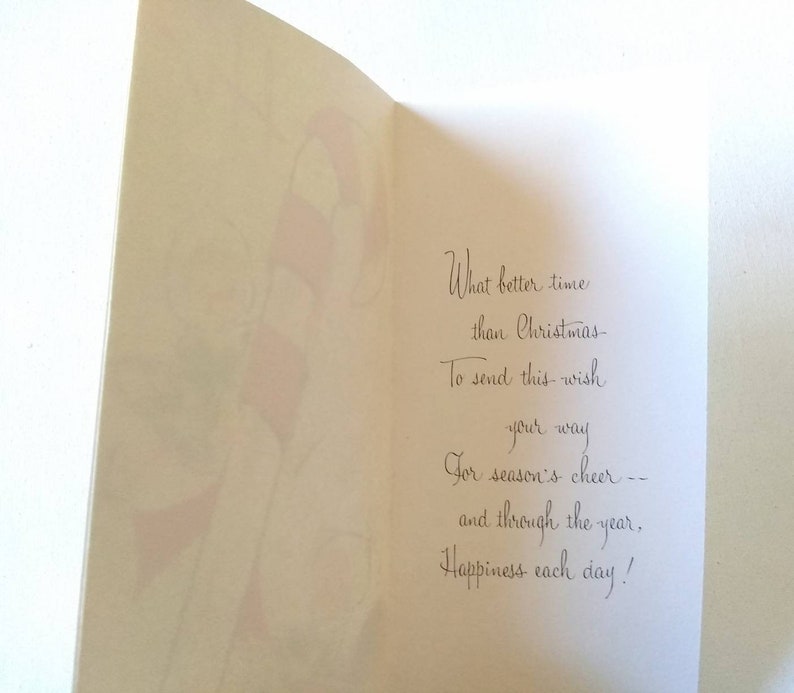 What better time
than Christmas
To send this wish
your way
For season's cheer --
and through the year,
Happiness each day!